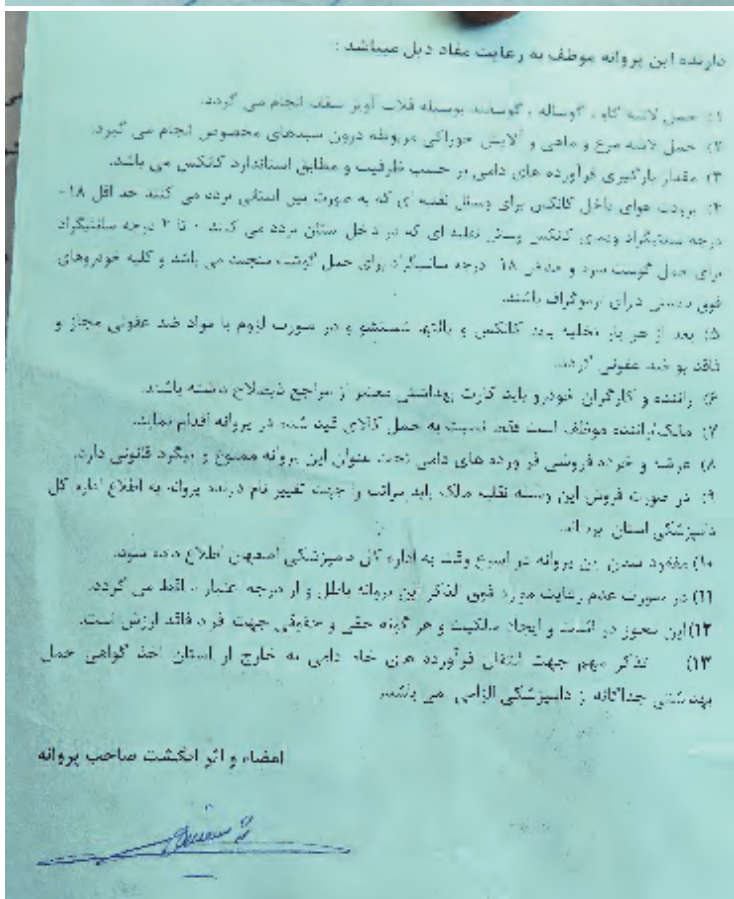 دارنده این پروانه موظف به رعایت مفاد ذیل میباشد :
۱) حمل لاشه گاو ، گوساله ، گوسفند بوسیله قلاب آویز سقف انجام می گردد.
۲) حمل لاشه مرغ و ماهی و آلایش خوراکی مربوطه درون سبدهای مخصوص انجام می گیرد.
۳) مقدار بارگیری فرآورده های دامی بر حسب ظرفیت و مطابق استاندارد کانکس می باشد.
۴) برودت هوای داخل کانکس برای وسائل نقلیه ای که به صورت بین استانی تردد می کنند حد اقل ۱۸-
درجه سانتیگراد ودمای کانکس وسائل نقلیه ای که در داخل استان تردد می کنند ۰ تا ۴ درجه سانتیگراد
برای حمل گوشت سرد و ۱۸- درجه سانتیگراد برای حمل گوشت منجمد می باشد و کلیه خودروهای
فوق بایستی دارای ترموگراف باشند.
۵) بعد از هر بار تخلیه باید کانکس و پالتها شستشو و در صورت لزوم با مواد ضد عفونی مجاز و
فاقد بو ضد عفونی گردد.
۶) راننده و کارگران خودرو باید کارت بهداشتی معتبر از مراجع ذیصلاح داشته باشند.
۷) مالک/راننده موظف است فقط نسبت به حمل کالای قید شده در پروانه اقدام نماید.
۸) عرضه و خرده فروشی فر ورده های دامی تحت عنوان این پروانه ممنوع و پیگرد قانونی دارد.
۹) در صورت فروش این وسیله نقلیه مالک باید مراتب را جهت تغییر نام دارنده پروانه به اطلاع اداره کل
دامپزشکی استان برساند.
۱۰) مفقود شدن این پروانه در اسرع وقت به اداره کل دامپزشکی اصفهان اطلاع داده شود.
۱۱) در صورت عدم رعایت موارد فوق الذکر این پروانه باطل و از درجه اعتبار ساقط می گردد.
۱۲) این مجوز در اثبات و ایجاد مالکیت و هر گونه حقی و حقوقی جهت افراد فاقد ارزش است.
۱۳) تذکر مهم جهت انتقال فرآورده های خام دامی به خارج از استان اخذ گواهی حمل
بهداشتی جداگانه از دامپزشکی الزامی می باشد.
امضاء و اثر انگشت صاحب پروانه